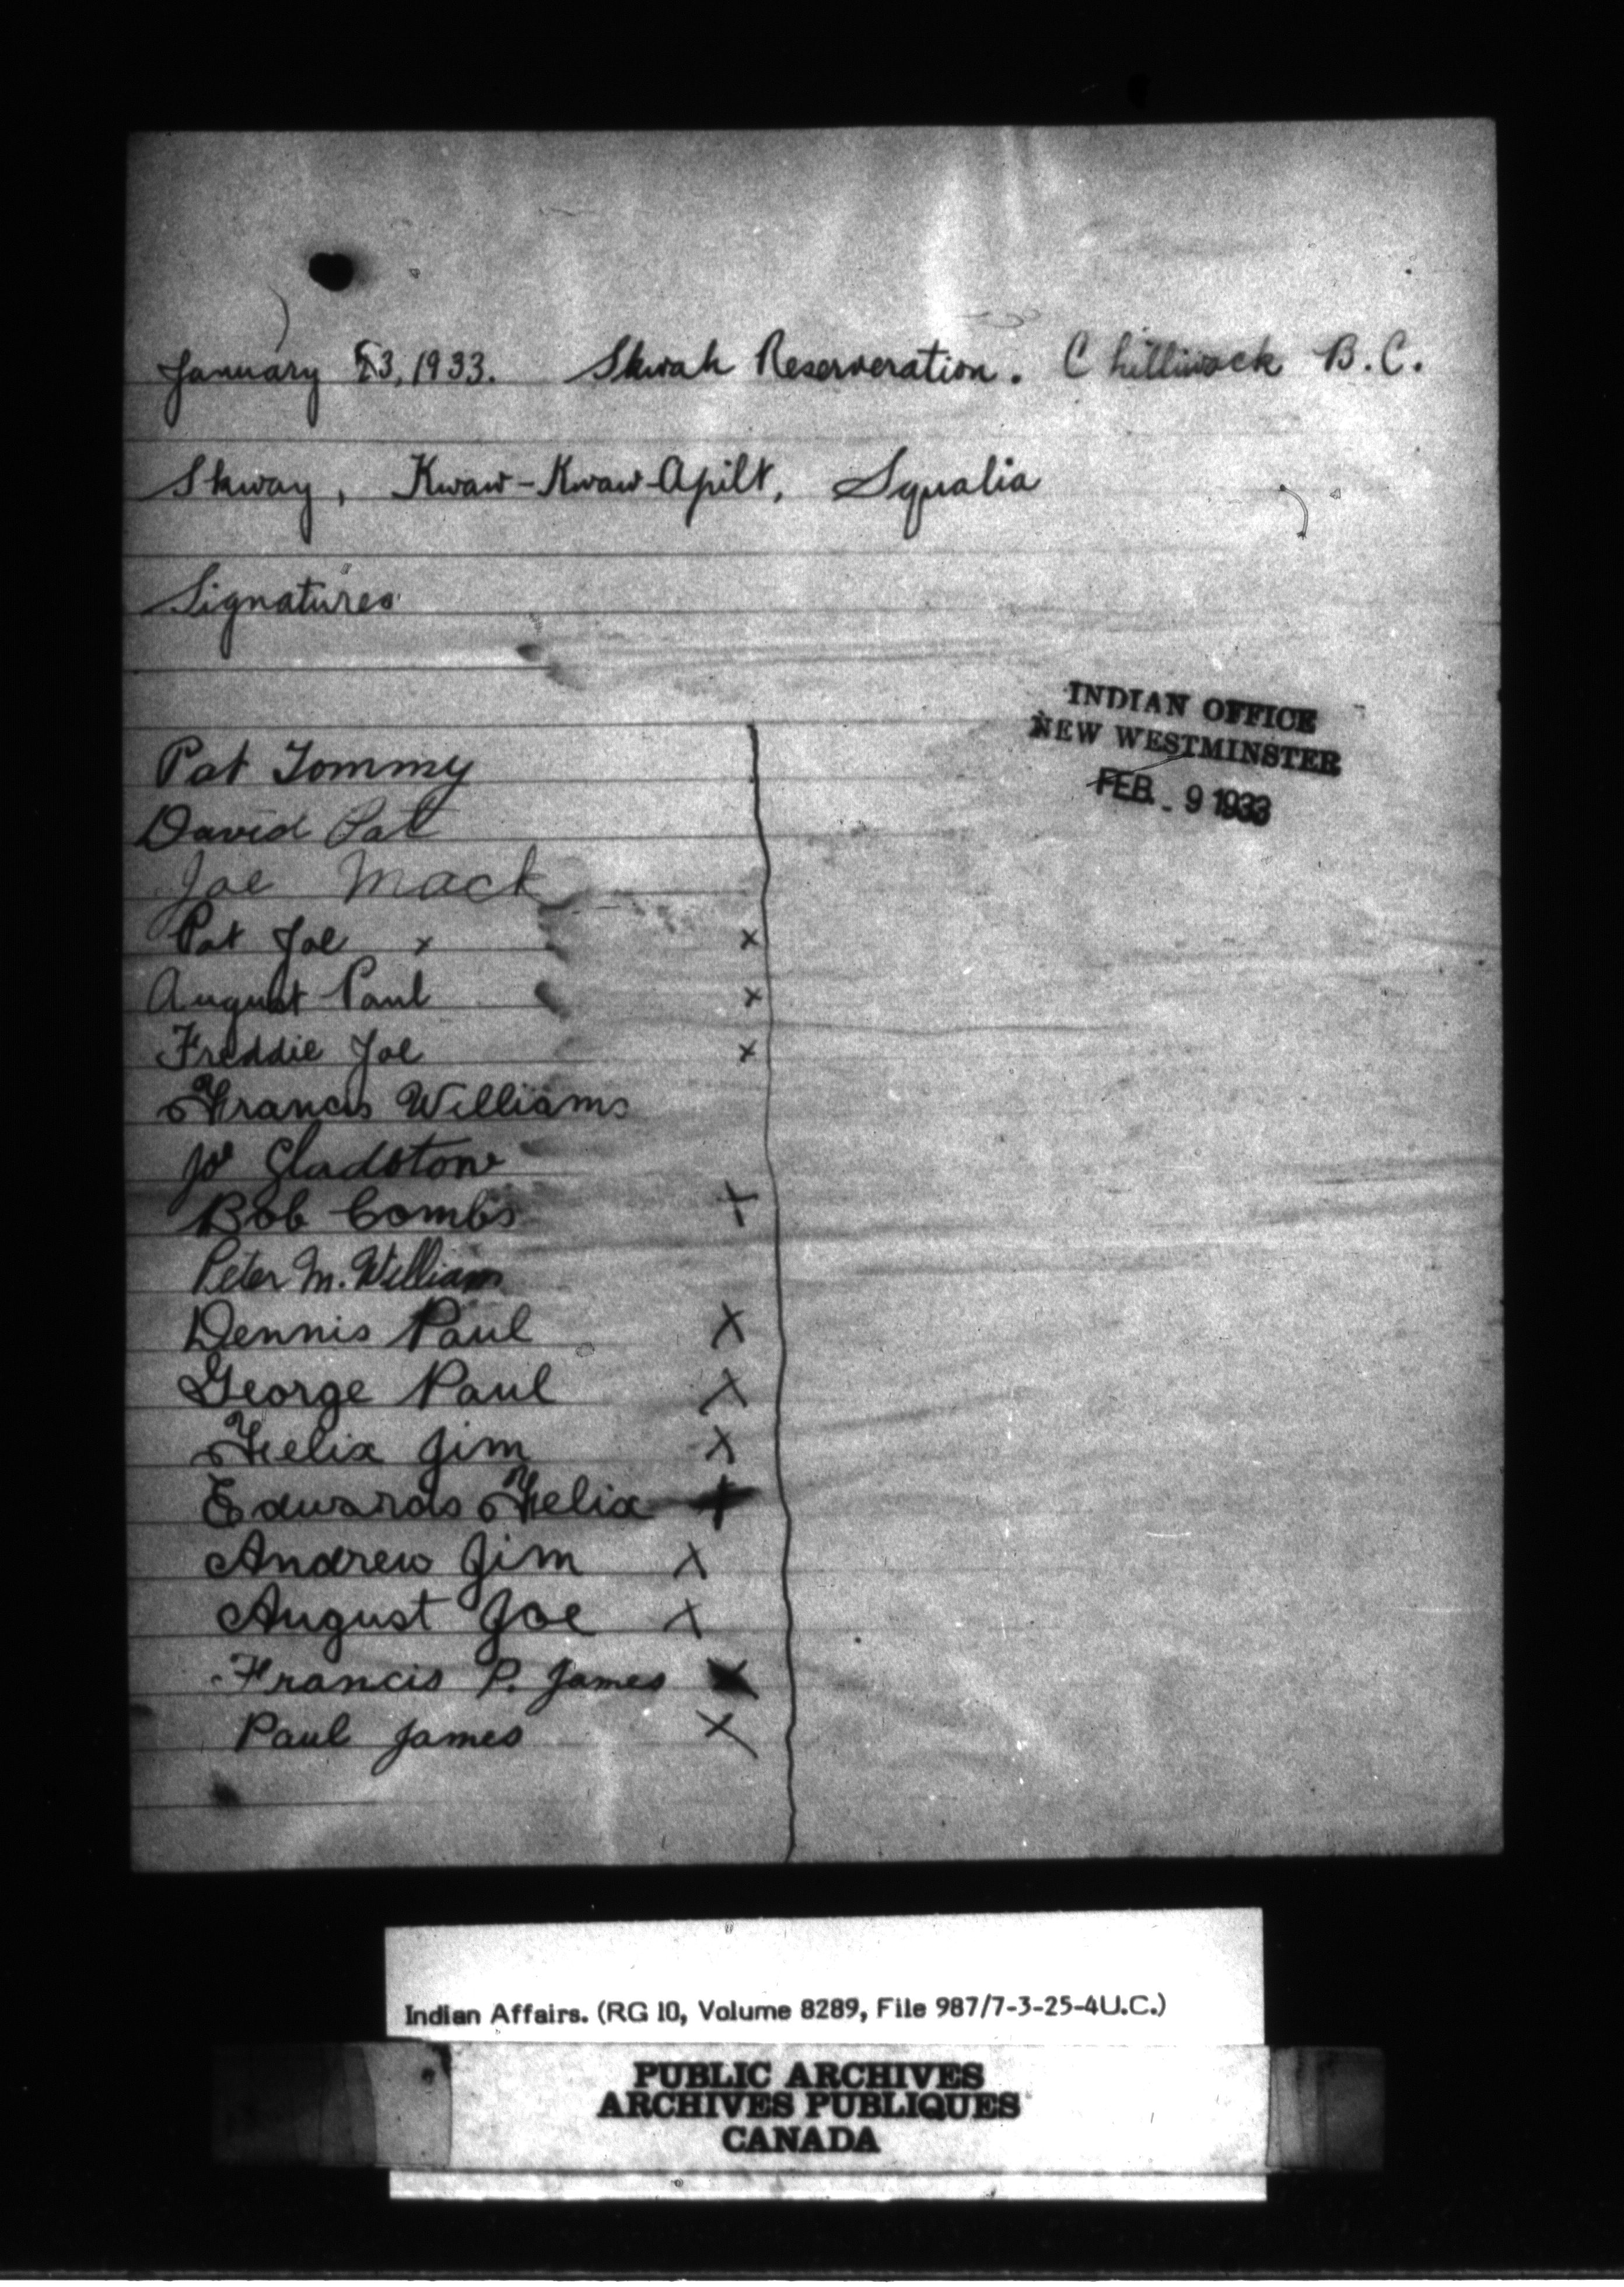 January 23, 1933. Skwah Reserveration. Chilliwack B.C.
Skway, Kwaw-Kwaw-Apilt, Squalia
Signatures
INDIAN OFFICE
NEW WESTMINSTER
FEB. 9 1933
Pat Tommy
David Pat
Joe Mack
Pat Joe x x
August Paul x
Freddie Joe x
Francis Williams
Joe Gladstone
Bob Combs x
Peter M. William
Dennis Paul x
George Paul x
Felix Jim x
Edwards Felix x
Andrew Jim x
August Joe x
Francis P. James x
Paul James x
Indian Affairs. (RG 10, Volume 8289, File 987/7-3-25-4U.C.)
PUBLIC ARCHIVES
ARCHIVES PUBLIQUES
CANADA